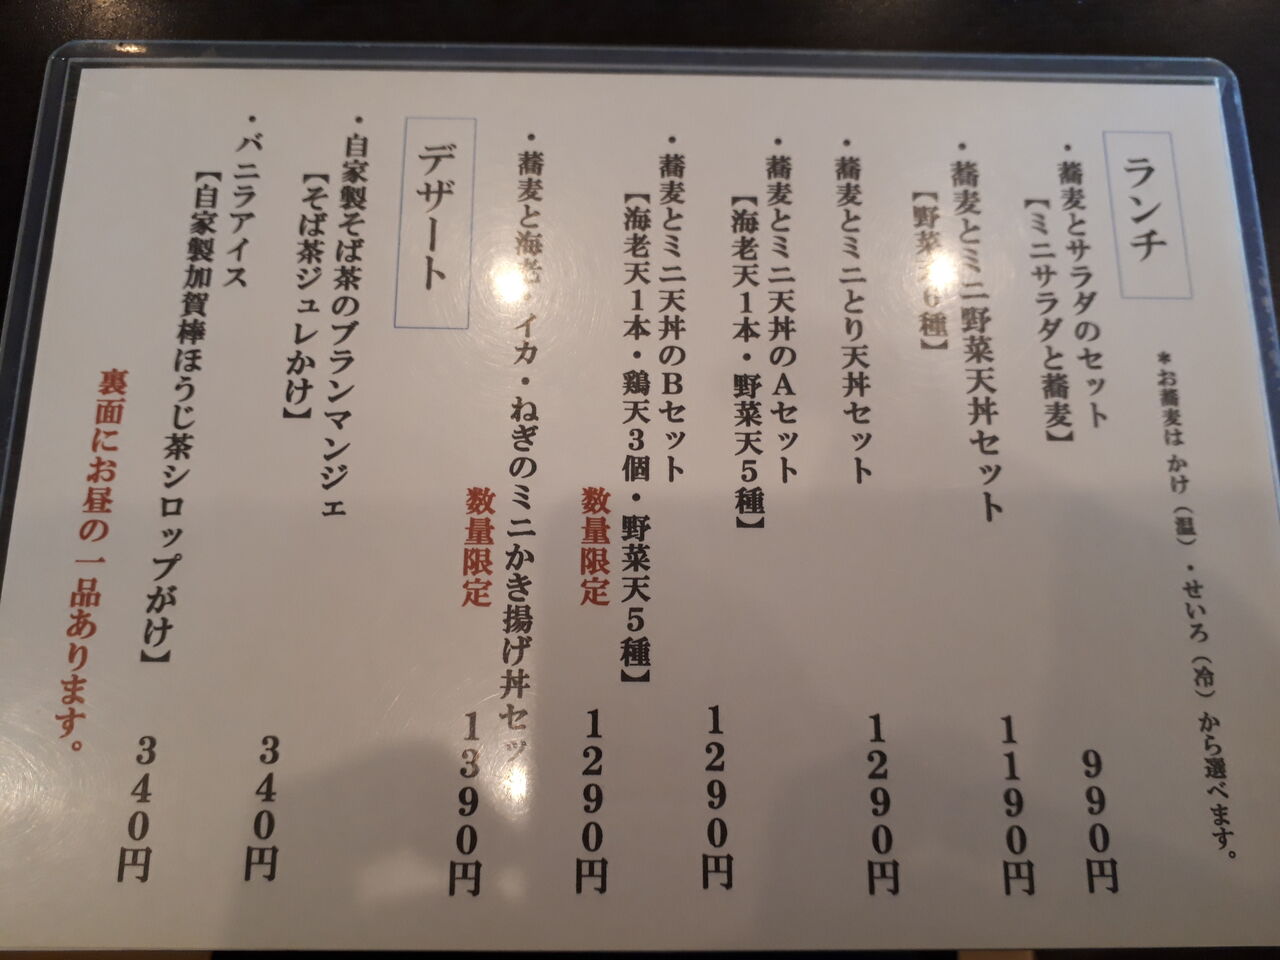 ランチ
＊お蕎麦は かけ（温）・せいろ（冷）から選べます。
・蕎麦とサラダのセット 990円
【ミニサラダと蕎麦】
・蕎麦とミニ野菜天丼セット 1190円
【野菜6種】
・蕎麦とミニとり天丼セット 1290円
・蕎麦とミニ天丼のAセット 1290円
【海老天1本・野菜天5種】
・蕎麦とミニ天丼のBセット 1290円
【海老天1本・鶏天3個・野菜天5種】
数量限定
・蕎麦と海老・イカ・ねぎのミニかき揚げ丼セット 1390円
数量限定
デザート
・自家製そば茶のブランマンジェ 340円
【そば茶ジュレかけ】
・バニラアイス 340円
【自家製加賀棒ほうじ茶シロップがけ】
裏面にお昼の一品あります。